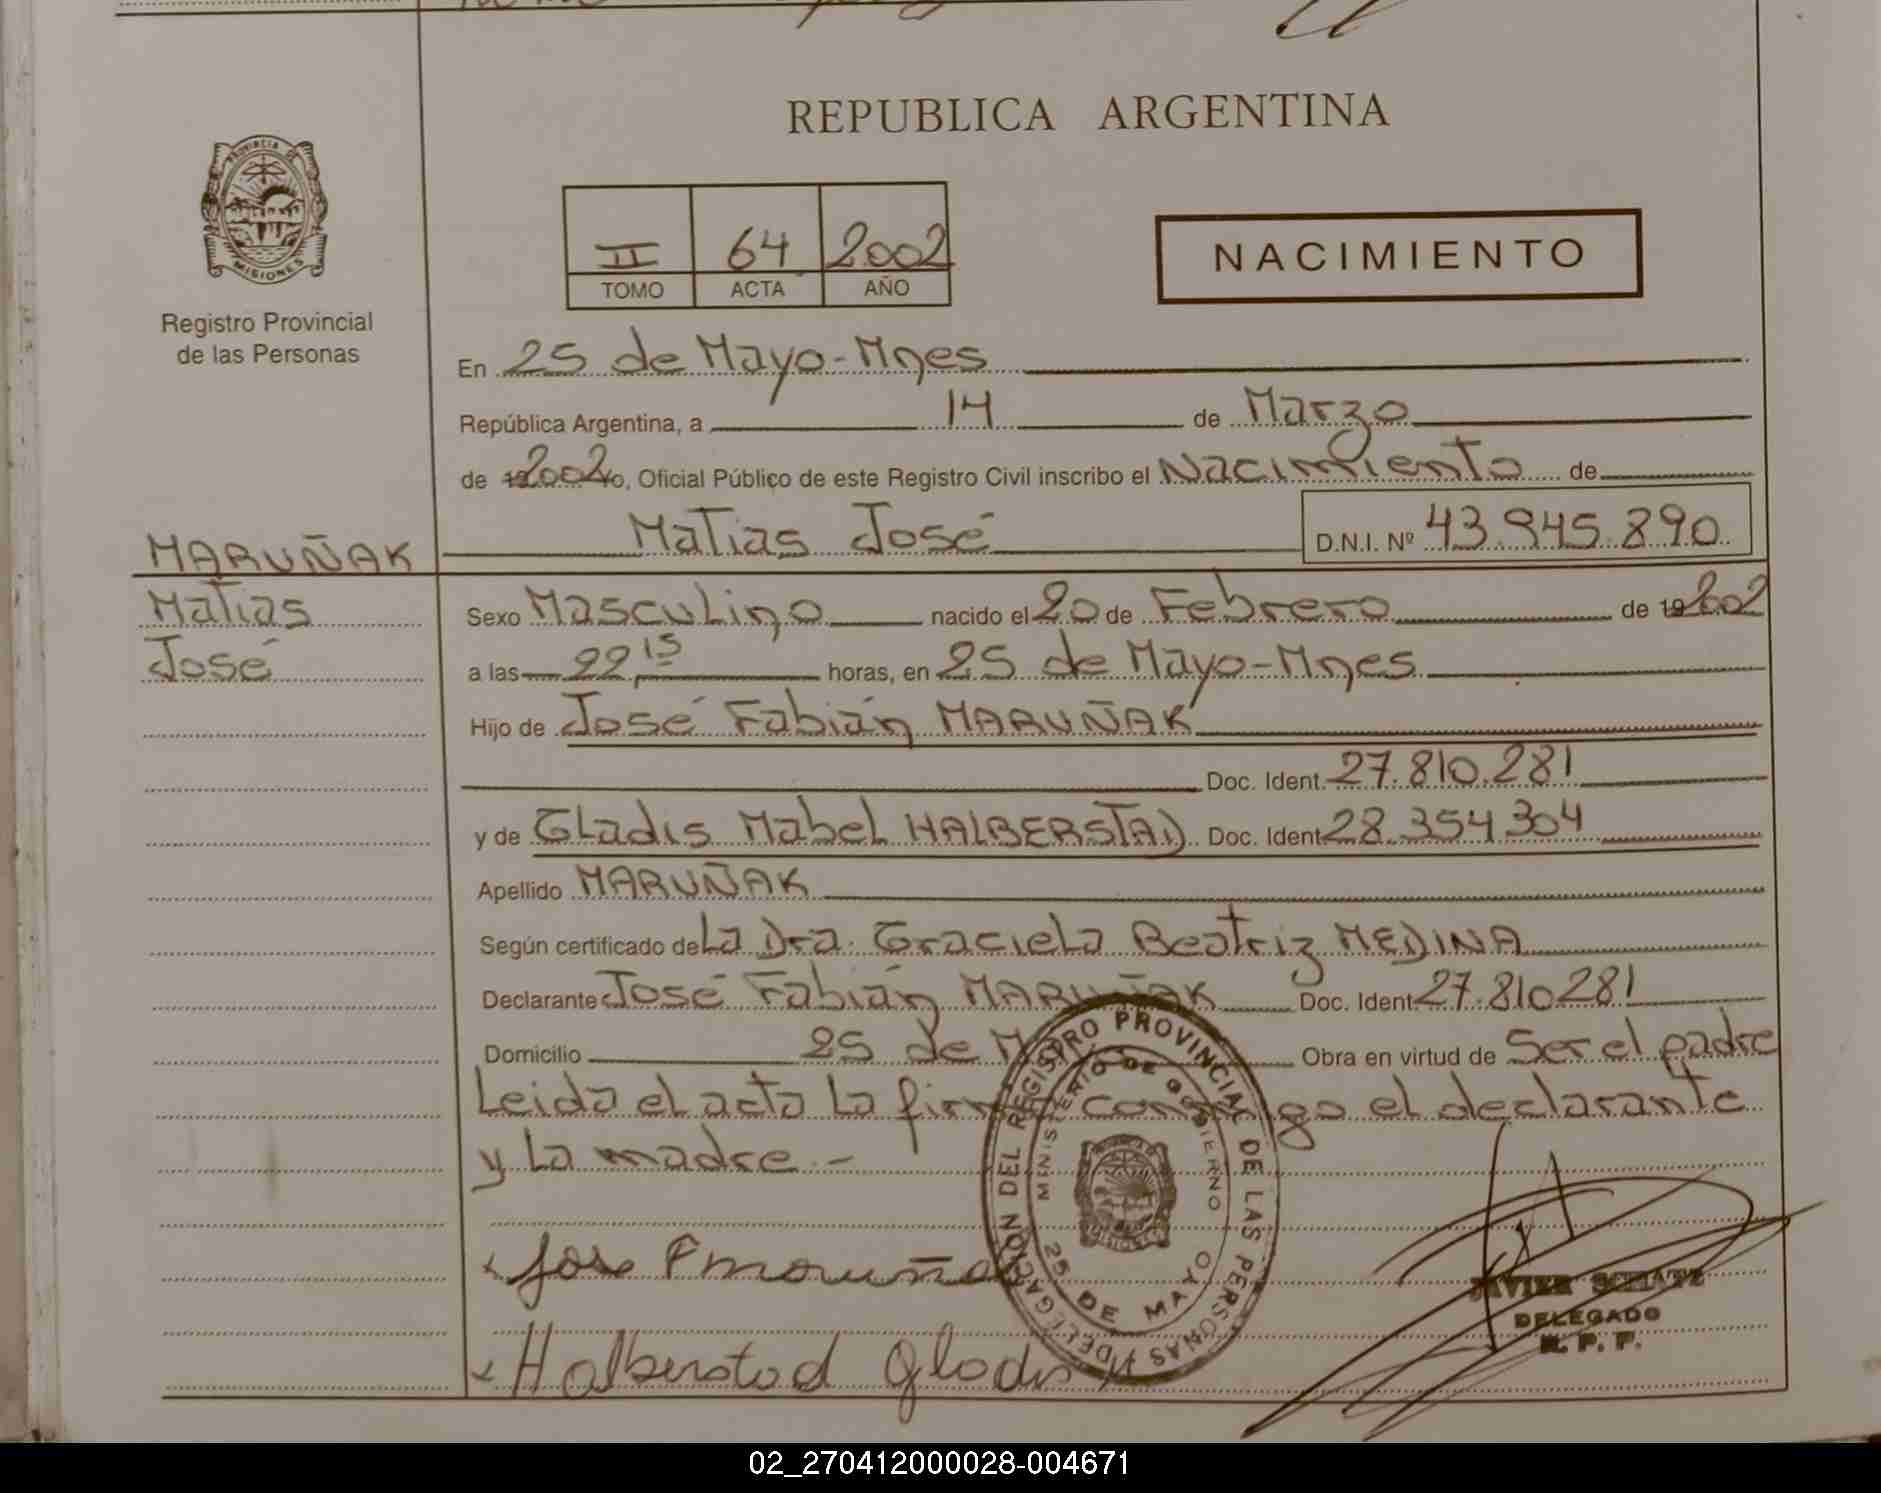 REPUBLICA ARGENTINA
PROVINCIA DE
MISIONES
Registro Provincial
de las Personas
II 64 2002
TOMO ACTA AÑO
NACIMIENTO
En 25 de Mayo-Mnes
República Argentina, a 14 de Marzo
de 2002 yo, Oficial Público de este Registro Civil inscribo el Nacimiento de
MARUÑAK
Matias José D.N.I. Nº 43.945.890
Matias
José
Sexo Masculino nacido el 20 de Febrero de 19 2002
a las 22,15 horas, en 25 de Mayo-Mnes
Hijo de José Fabián MARUÑAK
Doc. Ident. 27.810.281
y de Gladis Mabel HALBERSTAD Doc. Ident. 28.354.304
Apellido MARUÑAK
Según certificado de La Dra. Graciela Beatriz MEDINA
Declarante José Fabián MARUÑAK Doc. Ident. 27.810281
Domicilio 25 de Obra en virtud de Ser el padre
Leida el acta la firma conmigo el declarante
y la madre.-
DELEGACION DEL REGISTRO PROVINCIAL DE LAS PERSONAS
MINISTERIO DE GOBIERNO
25 DE MAYO
MISIONES
Jose F maruña
Halberstad Gladis
JAVIER SCHATZ
DELEGADO
R. P. P.
02_270412000028-004671